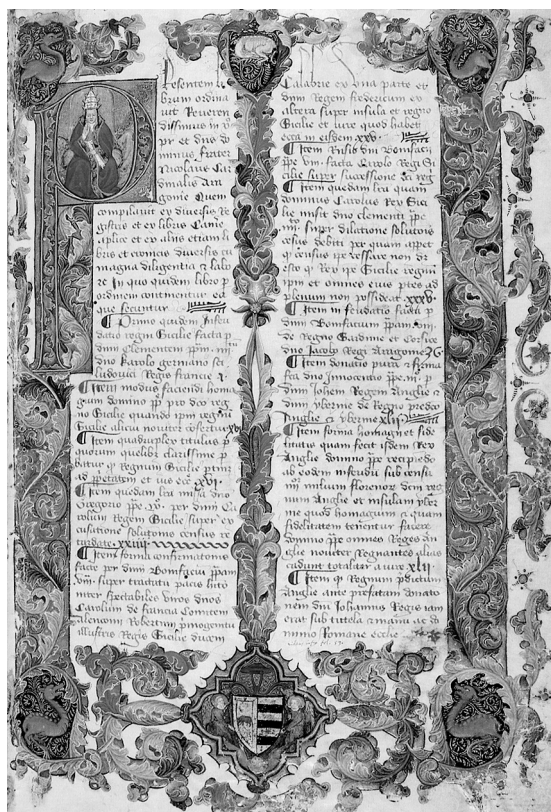 Presentem li
brum ordina
uit Reueren
dissimus in x
pr et dns d
minus frater
Nicolaus Car
dinalis Ara
gonie Quem
compilauit ex diuersis Re
gistris et ex libris Came
aplice et ex aliis etiam li
bris et cronicis diuersis cu
magna diligentia et labo
re In quo quidem libro p
ordinem continentur ea
que secuntur
Primo quidem Infeu
datio regni Sicilie facta p
dnm Clementem ppm iiii
dno Karolo germano sci
ludouici Regis francie
Item modus faciendi homa
gium domino pp pro dco reg
no Sicilie quando ipm regnu
Sicilie alicui nouiter confertur
Item quadruplex titulus p
quorum quelibet clarissime p
batur q Regnum Sicilie ptinz
ad et ius ecce xxvi
Item quedam lra missa dno
Gregorio ppe per dnm Ca
rolum Regem Sicilie super ex
cusatione solutionis census re
tardate xxviiii
Item forma confirmationis
facte per dnm Bonifacium ppam
viii super tractatu pacis habito
inter spectabiles viros dnos
Carolum de francia Comitem
Alenconii Robertum primogenitu
illustris Regis Sicilie ducem
Calabrie ex vna parte et
dnm Regem fredericum ex
altera super insula et regno
Sicilie et iure quod habet
ecca in eisdem xxx
Item dni Bonifacii
ppe viii facta Carolo Regi Si
cilie super successione regni
Item quedam lra quam
dominus Carolus Rex Sici
lie misit dno clementi ppe
iiii super dilatione solutionis
census debiti per quam appet
q census ppe cessare non
esto q Rex ipe Sicilie regnum
ipm et omnes eius ptes ad
plenum non possideat xxxv
Item in feudatio facta p
dnm Bonifacium ppam viii
de Regno Sardinie et Corsice
dno Jacobo Regi Aragone
Item donatio pura et firma
fca dno Innocentio ppe iii p
dnm Johem Regem Anglie et
dnm ybernie de Regno predco
Anglie et ybernie xlii
Item forma homagii et fide
litatis quam fecit isdem Rex
Anglie domno ppe recipiedo
ab eodem in feudu sub censu
mille florenor dcm reg
num Anglie et insulam yber
nie quod homagium et quam
fidelitatem tenentur facere
domno ppe omnes Reges An
glie nouiter Regnantes alias
cadunt totaliter a iure xlii
Item q Regnum pdictum
Anglie ante prefatam donatio
nem dni Johannis Regis iam
erat sub tutela et manu ac d
minio Romane ecclie